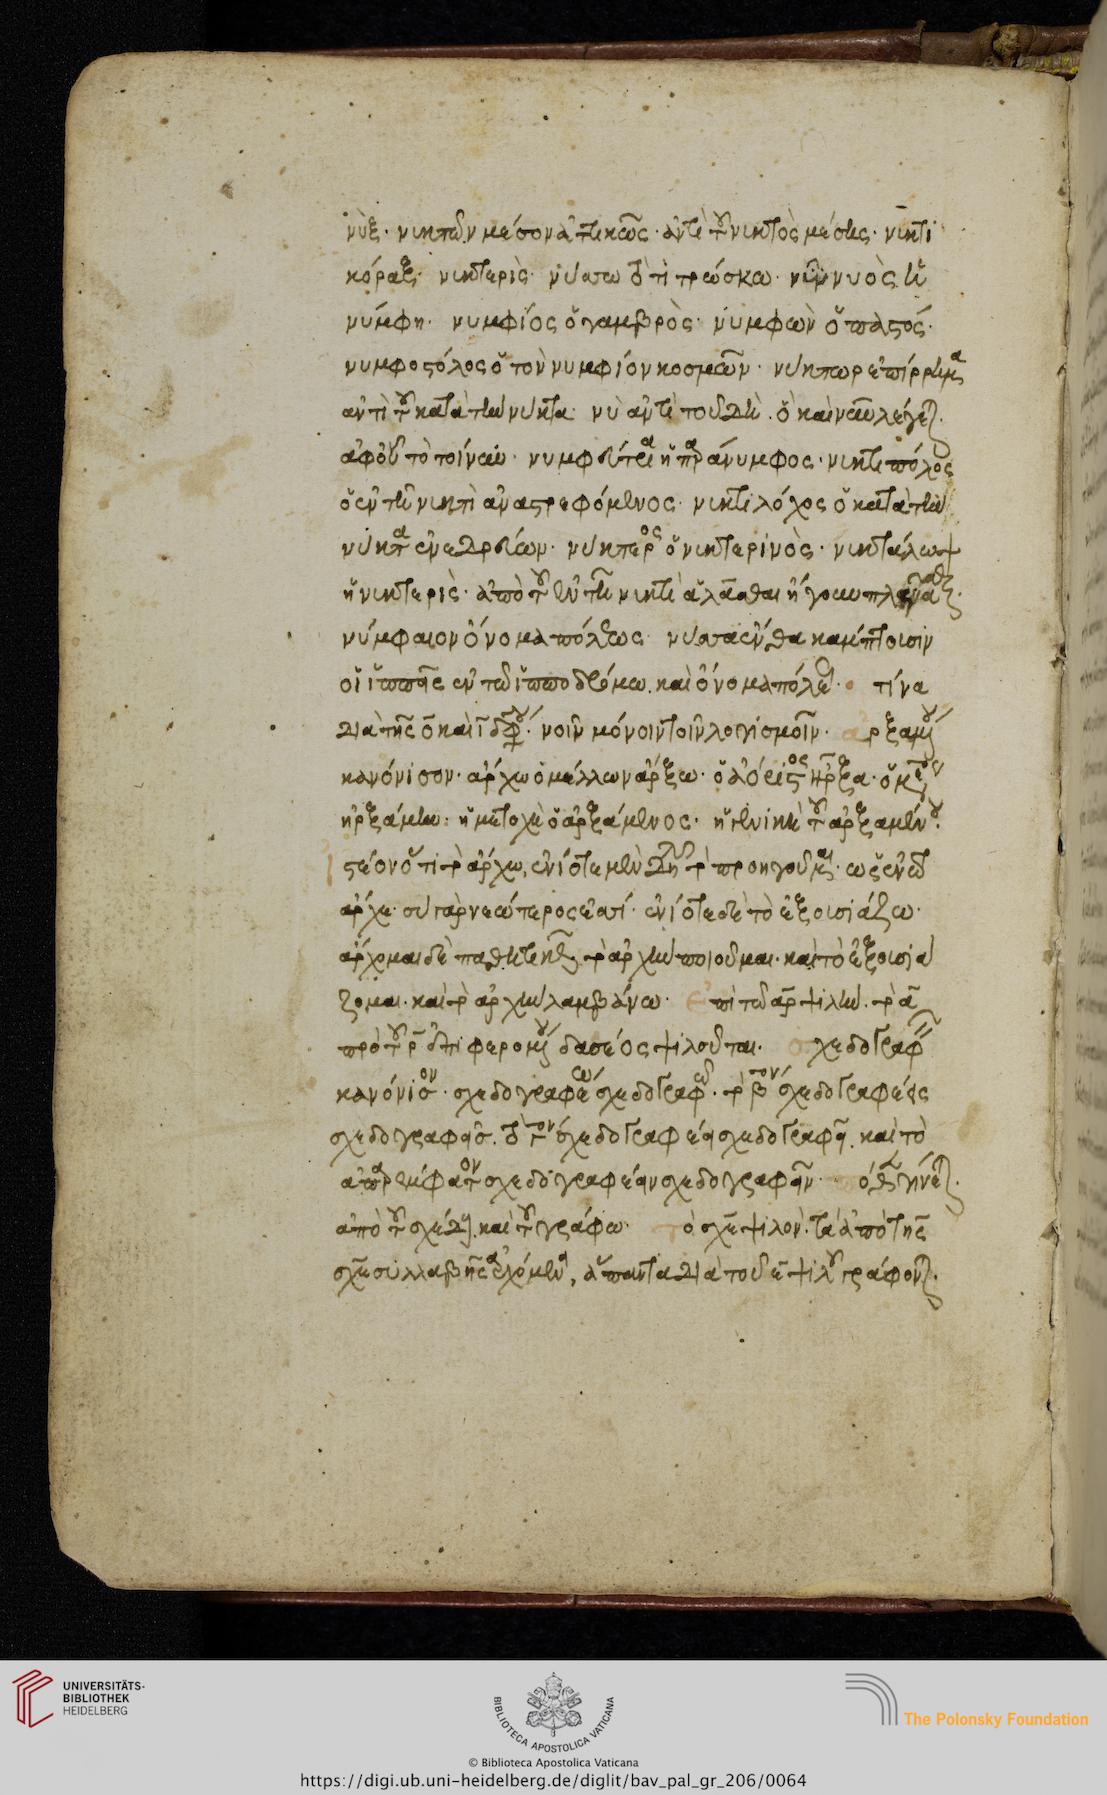 νὺξ· νυκτῶν μέσον ἀττικῶς· ἀντὶ τοῦ νυκτὸς μέσης· νυκτι
κόραξ· νυκτερὶς· νύσσω τὸ τιτρώσκω· νυὸς ἡ
νύμφη· νυμφίος ὁ γαμβρὸς· νυμφὼν ὁ παστός·
νυμφοστόλος ὁ τὸν νυμφίον κοσμῶν· νύκτωρ ἐπίρρημα
ἀντὶ τοῦ κατὰ τὴν νύκτα· νὺ ἀντὶ τοῦ δὴ· ὃ καὶ λέγεται·
ἀφ' οὗ τὸ τοίνυν· νυμφεύτρια ἡ παράνυμφος· νυκτιπόλος
ὁ ἐν τῇ νυκτὶ ἀναστρεφόμενος· νυκτιλόχος ὁ κατὰ τὴν
νύκτα ἐνεδρεύων· νύκτερος ὁ νυκτερινὸς· νυκτάλωψ
ἡ νυκτερὶς· ἀπὸ τοῦ ἐν τῇ νυκτὶ ἀλᾶσθαι ἤγουν πλανᾶσθαι·
νύμφαιον ὄνομα πόλεως· νύσσα ἔνθα κάμπτουσιν
οἱ ἵπποι ἐν τῷ ἱπποδρόμω. καὶ ὄνομα πόλεως· τίνα
διὰ τῆς οῖ καὶ ῖ διφθόγγου· νοῦν μόνον τοῖν λογισμοῖν· ἀρξαμένου
κανόνισον· ἄρχω ὁ μέλλων ἄρξω· ὁ ἀόριστος ἦρξα· ὁ μέσος
ἠρξάμην· ἡ μετοχὴ ὁ ἀρξάμενος· ἡ γενικὴ τοῦ ἀρξαμένου·
ἰστέον ὅτι τὸ ἄρχω, ἐνίοτε μὲν δηλοῖ τὸ προηγοῦμαι· ὡς ἐν τῷ
ἄρχε· σὺ γὰρ νεώτερος ἐσσί· ἐνίοτε δὲ τὸ ἐξουσιάζω·
ἄρχομαι δὲ παθητικῶς τὸ ἀρχὴν ποιοῦμαι· καὶ τὸ ἐξουσιά
ζομαι· καὶ τὸ ἀρχὴν λαμβάνω· ἐπὶ τῷ ἀρ ψιλὴν· τὸ α
πρὸ τοῦ ρ ἐπιφερομένου δασέος ψιλοῦται· σχεδογραφεῖν
κανόνισον· σχεδογραφέω σχεδογραφῶ· τὸ β σχεδογραφέεις
σχεδογραφεῖς· τὸ τρίτον σχεδογραφέει σχεδογραφεῖ· καὶ τὸ
ἀπαρέμφατον σχεδογραφέειν σχεδογραφεῖν· πόθεν γίνεται·
ἀπὸ τοῦ σχέδους καὶ τοῦ γράφω· τὸ σχε ψιλὸν· τὰ ἀπὸ τῆς
σχε συλλαβῆς ἀρχόμενα, ἅπαντα διὰ τοῦ ε ψιλοῦ γράφονται·
UNIVERSITÄTS-
BIBLIOTHEK
HEIDELBERG
BIBLIOTECA APOSTOLICA VATICANA
The Polonsky Foundation
© Biblioteca Apostolica Vaticana
https://digi.ub.uni-heidelberg.de/diglit/bav_pal_gr_206/0064